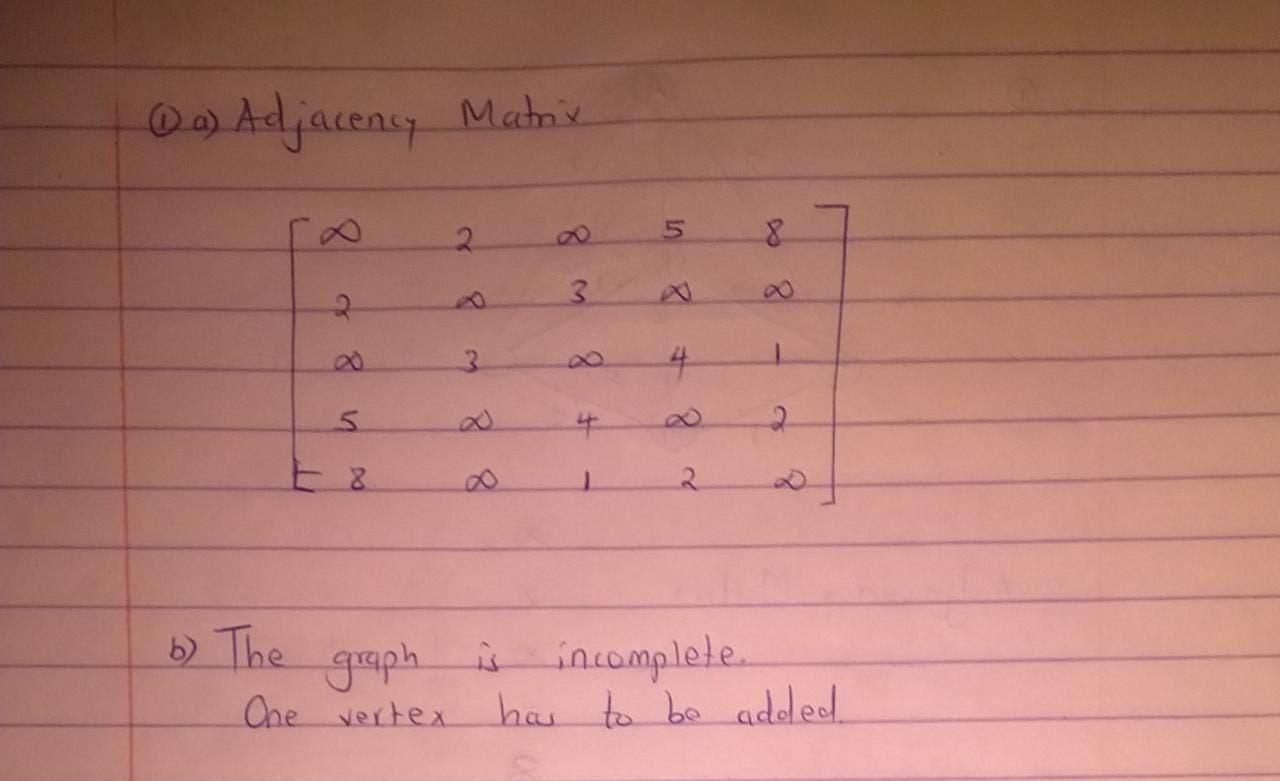 ① a) Adjacency Matrix
∞ 2 ∞ 5 8
2 ∞ 3 ∞ ∞
∞ 3 ∞ 4 1
5 ∞ 4 ∞ 2
8 ∞ 1 2 ∞
b) The graph is incomplete.
One vertex has to be added.